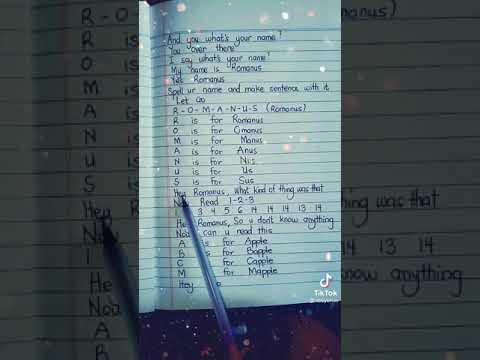 And you what's your name?
You over there
I say what's your name?
My name is Romanus
Yes Romanus
Spell ur name and make sentence with it
Let Go
R-O-M-A-N-U-S (Romanus)
R is for Romanus
O is for Omonus
M is for Monus
A is for Anus
N is for Nus
U is for Us
S is for Sus
Hey Romanus, what kind of thing was that
Now Read 1-2-3
1 3 4 5 6 14 14 13 14
Hey Romanus, So u don't know anything
Now can u read this
A is for Apple
B is for Bapple
C is for Capple
M for Mapple
Hey
TikTok